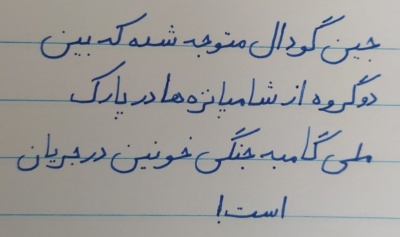 جین گودال متوجه شده که بین
دو گروه از شامپانزه ها در پارک
ملی گامبه جنگی خونین در جریان
است!